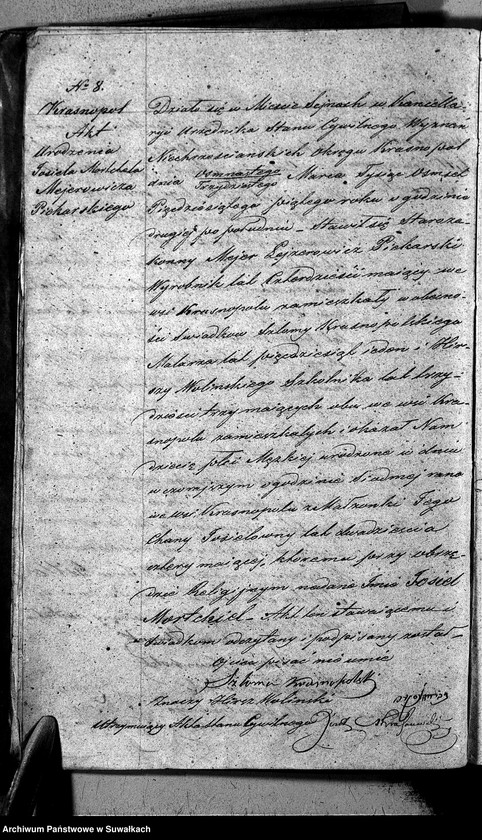 No 8.
Krasnopol
Akt
Urodzenia
Josiela Mortchela
Mejerowicza
Piekarskiego
Działo się w Mieście Sejnach w Kancella-
ryi Urzędnika Stanu Cywilnego Wyznań
Niechrześcianskich Okręgu Krasnopol
dnia Osmnastego Marca Tysiąc Osmset
Trzydziestego
Pięćdziesiątego piątego roku o godzinie
drugiej po południu – Stawił się Staroza-
konny Mejer Lejzerowicz Piekarski
Wyrobnik lat Czterdzieści maiący we
wsi Krasnopolu zamieszkały w obecno-
ści Świadków Szlomy Krasnopolskiego
Malarza lat pięćdziesiąt ieden i Hir-
szy Wolinskiego Szkolnika lat trzy-
dzieści trzy maiących obu we wsi Kra-
snopolu zamieszkałych i okazał Nam
dziecię płci Męzkiej urodzone w dniu
wczorajszym o godzinie siódmej rano
we wsi Krasnopolu z Małżonki Jego
Chany Josielowny lat dwadzieścia
cztery maiącej, któremu przy obrzę-
dzie Religijnym nadano Imie Josiel
Mortchiel – Akt ten stawaiącemu i
Świadkom odczytany i podpisany został –
Ojciec pisać nie umie
Szloma Krasnopolski
Znaczy Hirsz Wolinski
Utrzymujący Akta Stanu Cywilnego